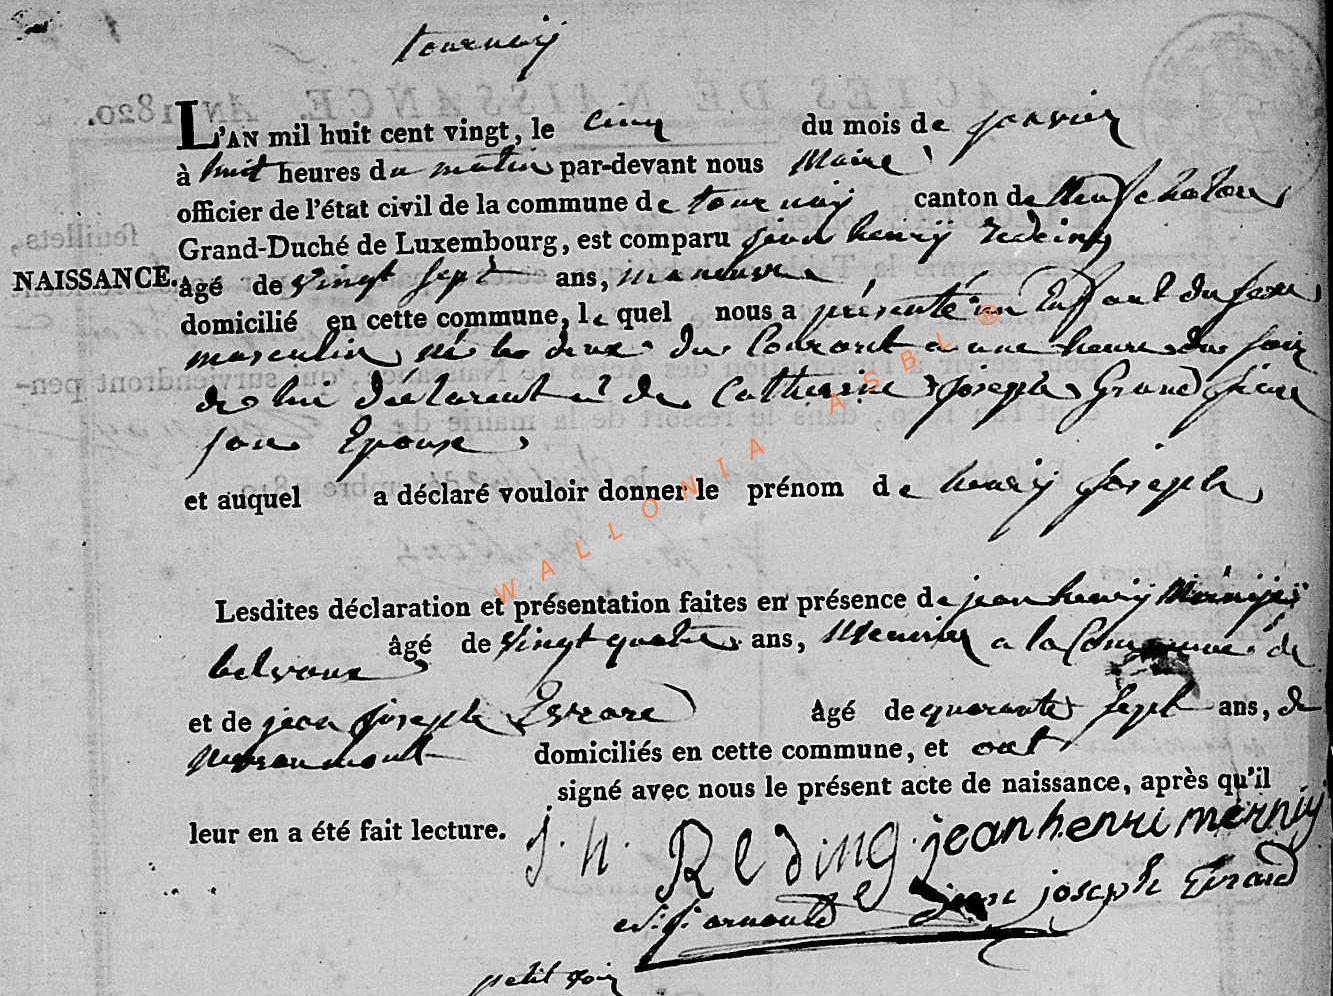 tournaij
L'AN mil huit cent vingt, le cinq du mois de janvier
à huit heures du matin par-devant nous Maire
officier de l'état civil de la commune de tournaij canton de Neufchateau
Grand-Duché de Luxembourg, est comparu jean henrij Redeing
NAISSANCE. âgé de vingt sept ans, maneuvre
domicilié en cette commune, le quel nous a présenté un Enffant du sexe
masculin né le deux du Courant a une heure du soir
de lui déclarant et de Catherine josephe Grand
son Epouse
et auquel a déclaré vouloir donner le prénom de henrij joseph
Lesdites déclaration et présentation faites en présence de jean henrij
âgé de vingt quatre ans, a la Commune de
belvaux
et de jean joseph Evrard âgé de quarante sept ans, de
domiciliés en cette commune, et ont
signé avec nous le présent acte de naissance, après qu'il
leur en a été fait lecture.
j. h. Reding jean henri mernij
arnould jean joseph Evrard
petit
WALLONIA ASBL ®